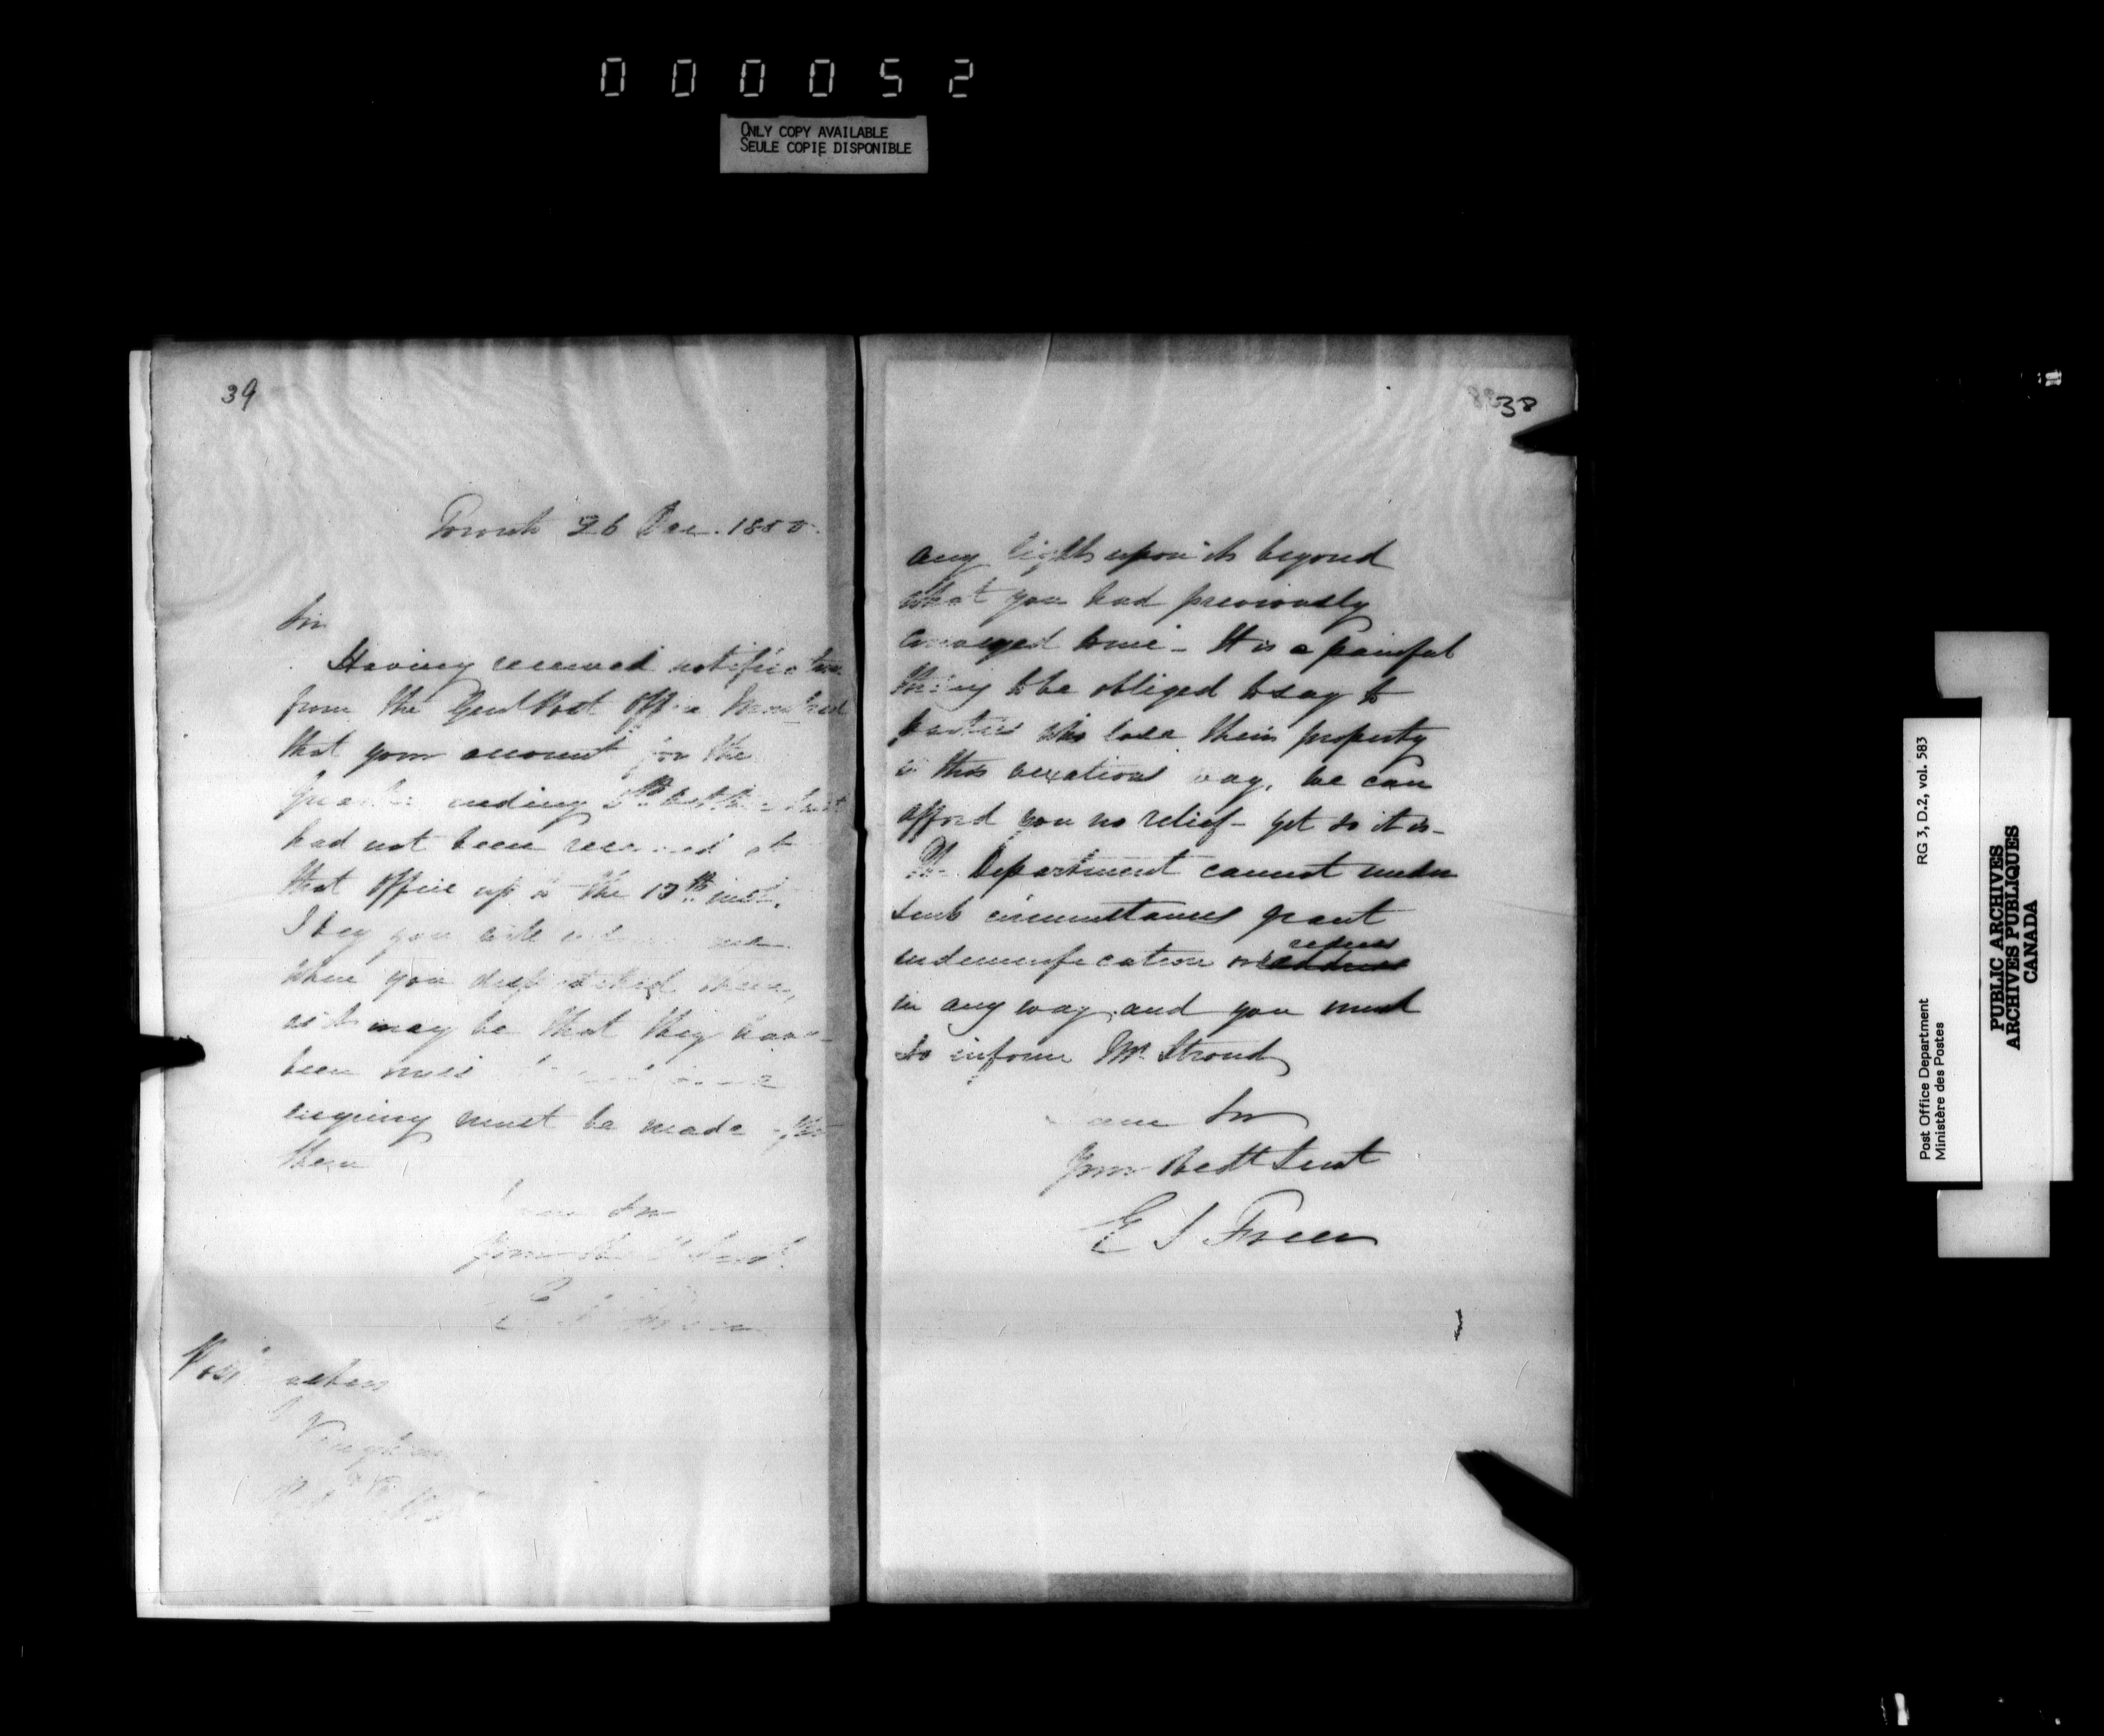 000052
ONLY COPY AVAILABLE
SEULE COPIE DISPONIBLE
39
Toronto 26 Dec. 1850.
Sir
Having received notification
from the Genl Post Office Montreal
that your account for the
Quarter ending 5th October last
had not been received at
that office up to the 13th inst.
I beg you will inform me
when you despatched them,
as it may be that they have
been
enquiry must be made after
them
I am Sir
Your Obedt Servt
E S Freer
Postmaster
Vaughan
38
any light upon it beyond
what you had previously
conveyed to me - It is a painful
thing to be obliged to say to
parties who lose their property
in this vexatious way, we can
afford you no relief - yet so it is -
The Department cannot under
such circumstances grant
indemnification or redress
in any way, and you must
so inform Mr. Stroud
I am Sir
Your Obedt Servt
E S Freer
Post Office Department
Ministère des Postes
RG 3, D.2, vol. 583
PUBLIC ARCHIVES
ARCHIVES PUBLIQUES
CANADA